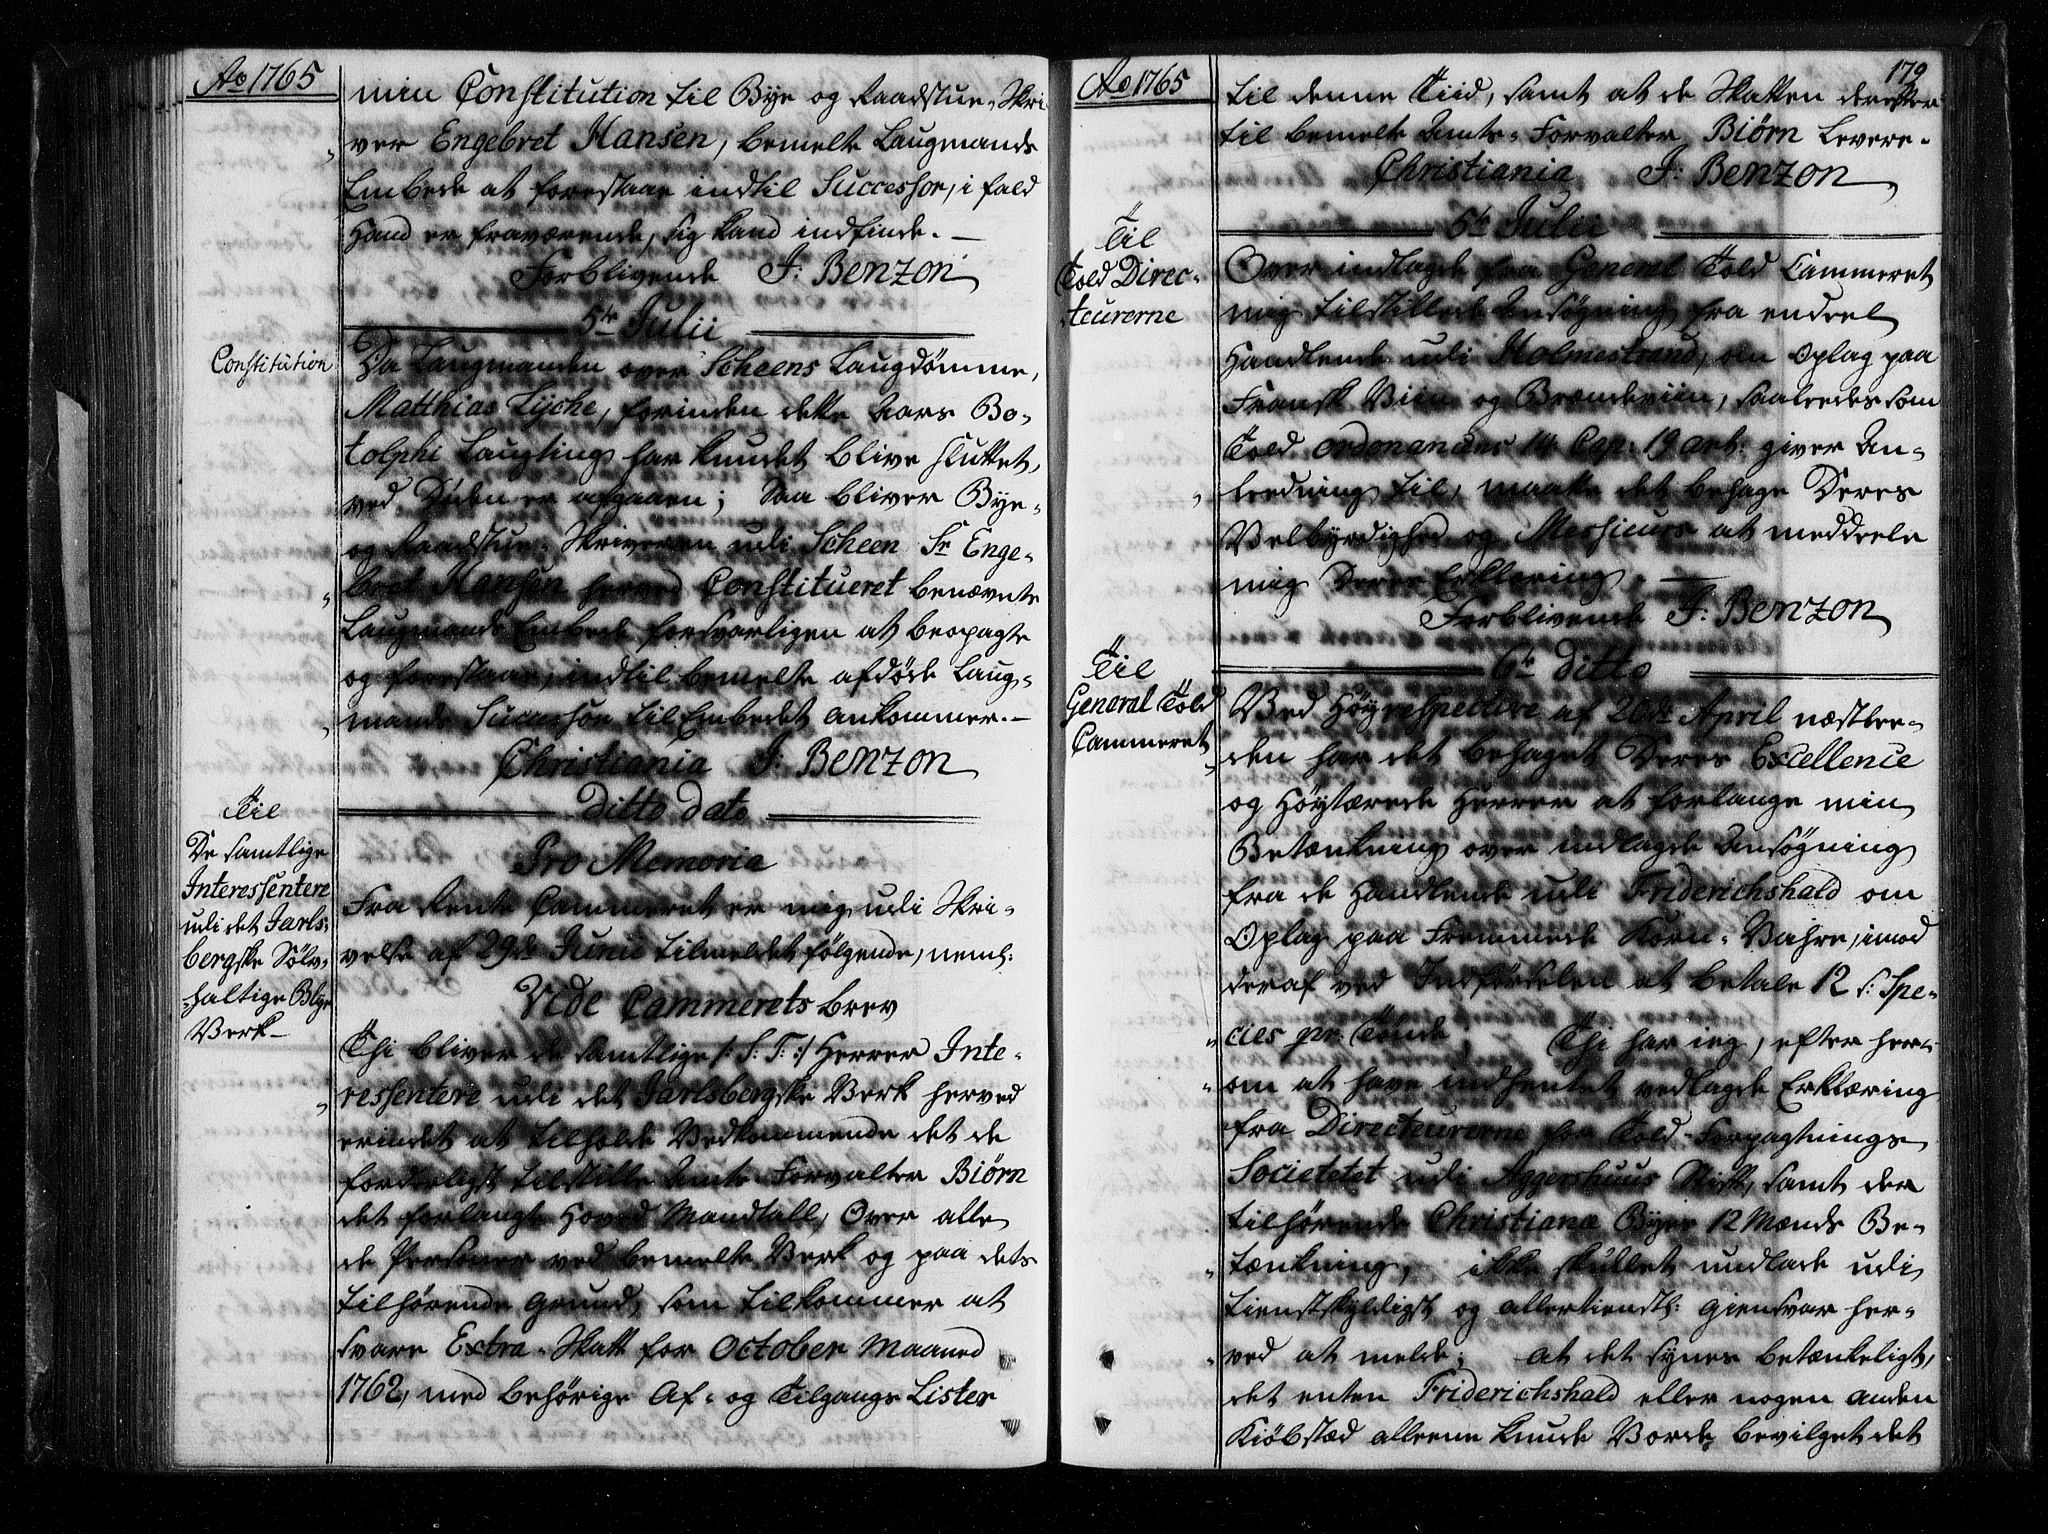 Ao 1765
min Constitution til Bye og Raadstue-Skri
ver Engebret Hansen, bemelte Laugmands
Embede at forestaae indtil Successor, i fald
Hand er fraværende, sig kand indfinde. —
Forblivende J: Benzon
5te Julii
Constitution
Da Laugmanden over Scheens Laugdømme,
Matthias Lyche, forinden dette Aars Bo-
tolphi Laugting har kundet blive sluttet,
ved Døden er afgaaen; Saa bliver Bye-
og Raadstue-Skriveren udi Scheen Sr Enge-
bret Hansen herved Constitueret benævnte
Laugmands Embede forsvarligen at beopagte
og forestaae, indtil bemelte afdøde Laug-
mands Successor til Embedet ankommer. —
Christiania J: Benzon
ditto dato
Til
De samtlige
Interessentere
udi det Jarls-
bergske Sølv-
haltige Blye
Verk —
Pro Memoria
Fra Rente Cammeret er mig udi Skri-
velse af 29de Junii tilmeldet følgende, neml:
Vide Cammerets brev
Thi bliver de samtlige /: S: T: :/ Herrer Inte-
ressentere udi det Jarlsbergske Verk herved
erindret at tilholde Vedkommende det de
forderligst tilstille Amts-Forvalter Biørn
det forlangte Hoved Mandtall, Over alle
de Personer ved bemelte Verk og paa dets
tilhørende Grund, som tilkommer at
svare Extra-Skatt for October Maaned
1762, med behørige Af- og Tilgangs Lister
Ao 1765
179
til denne Tiid, samt at de Skatten derefter
til bemelte Amts-Forvalter Biørn levere-
Christiania J: Benzon
5te Julii
Til
Told Direc-
teurerne
Over indlagde fra General Told Cammeret
mig tilstillede Ansøgning fra endeel
Handlende udi Holmestrand, om Oplag paa
Fransk Viin og Brændeviin, saaledes som
Told ordonancens 14 Cap: 19 art: giver An-
ledning til, maatte det behage Deres
Velbyrdighed og Messieurs at meddeele
mig Deres Erklæring. —
Forblivende J: Benzon
6te ditto
Til
General Told
Cammeret
Ved Høyrespective af 20de April næstlee-
den har det behaget Deres Excellence
og Høytærede Herrer at forlange min
Betænkning over indlagde Ansøgning
fra de Handlende udi Friderichshald om
Oplag paa Fremmede Korn-Vahre, imod
deraf ved Indførselen at betale 12 s: Spe-
cies pr: Tønde; Thi har ieg, efter her-
om at have indhentet vedlagde Erklæring
fra Directeurerne for Told-Forpagtnings
Societetet udi Aggershuus Stift, samt der
tilhørende Christiania Byes 12 Mænds Be-
tænkning, ikke skullet undlade udi
tienstskyldigst og allertienstl: Giensvar her-
ved at melde; at det synes betænkeligt,
det enten Friderichshald eller nogen anden
Kiøbstæd alleene kunde Vorde bevilget det